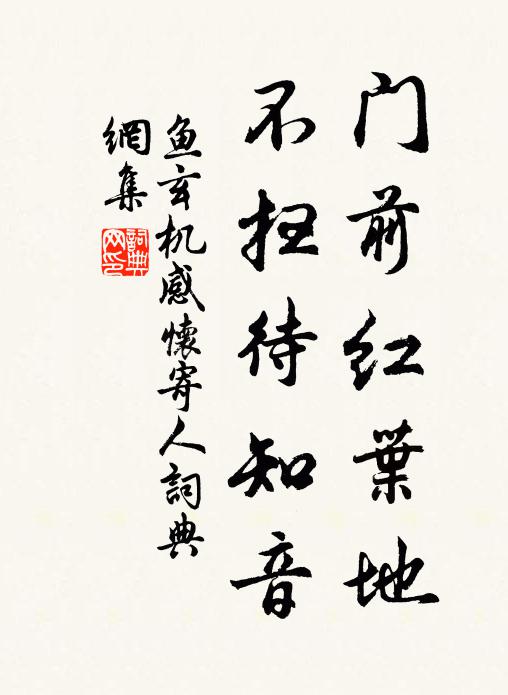 门前红葉地
不扫待知音
鱼玄机感懷寄人詞典
網集
詞典网印